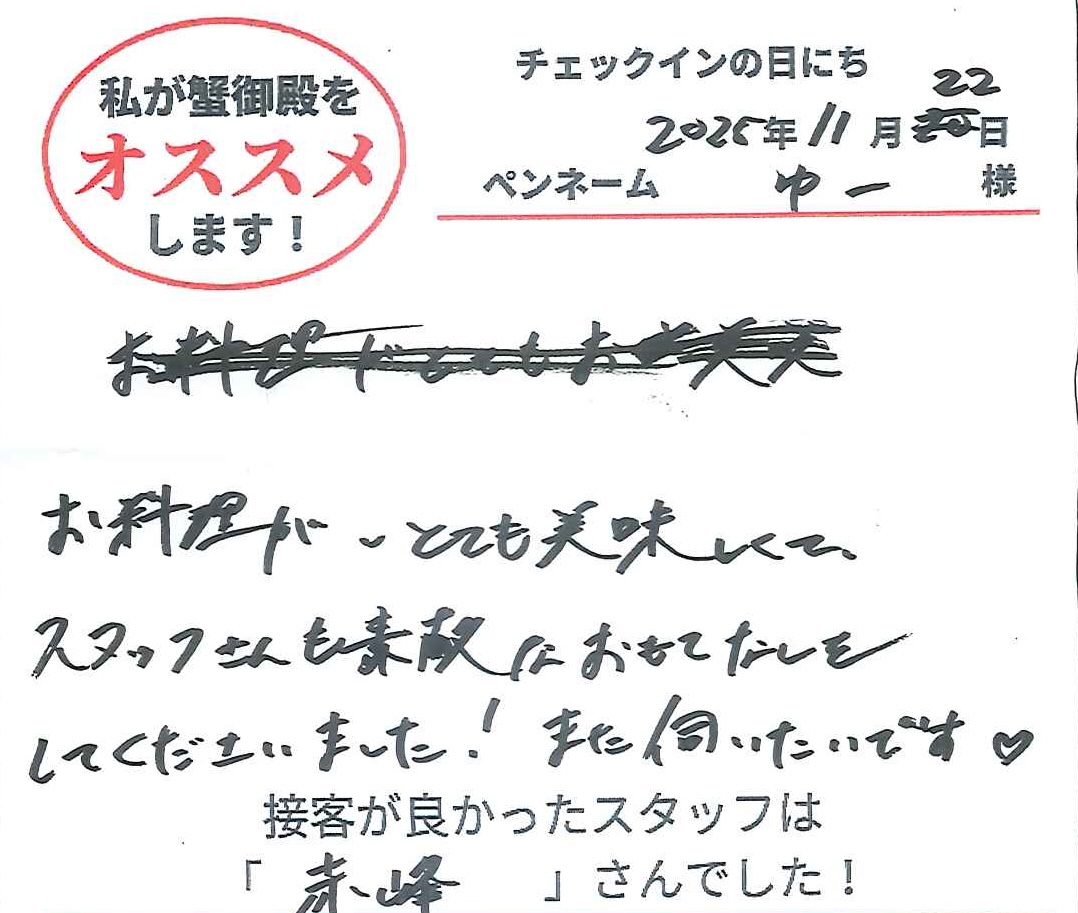 私が蟹御殿を
オススメ
します！
チェックインの日にち
2025年11月22日
ペンネーム ゆー 様
お料理がとてもお
お料理が、とても美味しくて、
スタッフさんも素敵なおもてなしを
してくださいました！また伺いたいです♡
接客が良かったスタッフは
「赤峰」さんでした！